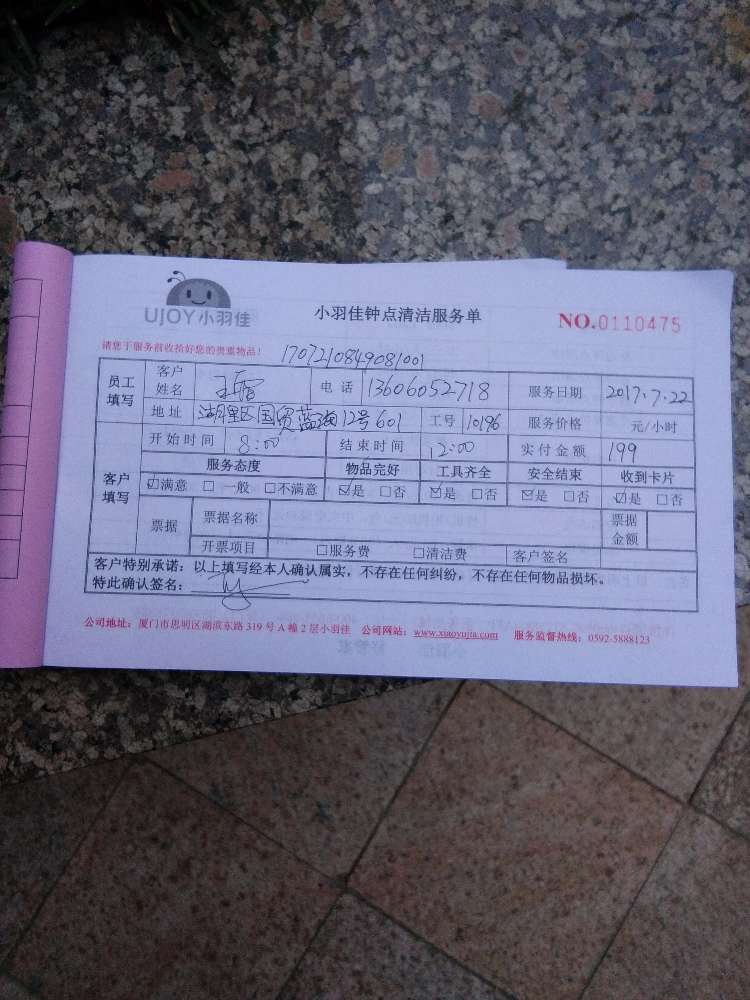 UJOY小羽佳
小羽佳钟点清洁服务单
NO.0110475
请您于服务前收拾好您的贵重物品！ 1707210849081001
员工填写 客户姓名 电话 13606052718 服务日期 2017.7.22
地址 湖里区国贸蓝海12号601 工号 10196 服务价格 元/小时
客户填写 开始时间 8:00 结束时间 12:00 实付金额 199
服务态度 物品完好 工具齐全 安全结束 收到卡片
☑满意 □一般 □不满意 ☑是 □否 ☑是 □否 ☑是 □否 ☑是 □否
票据 票据名称 票据金额
开票项目 □服务费 □清洁费 客户签名
客户特别承诺：以上填写经本人确认属实，不存在任何纠纷，不存在任何物品损坏。
特此确认签名：
公司地址：厦门市思明区湖滨东路 319 号 A 幢 2 层小羽佳 公司网站：www.xiaoyujia.com 服务监督热线：0592-5888123